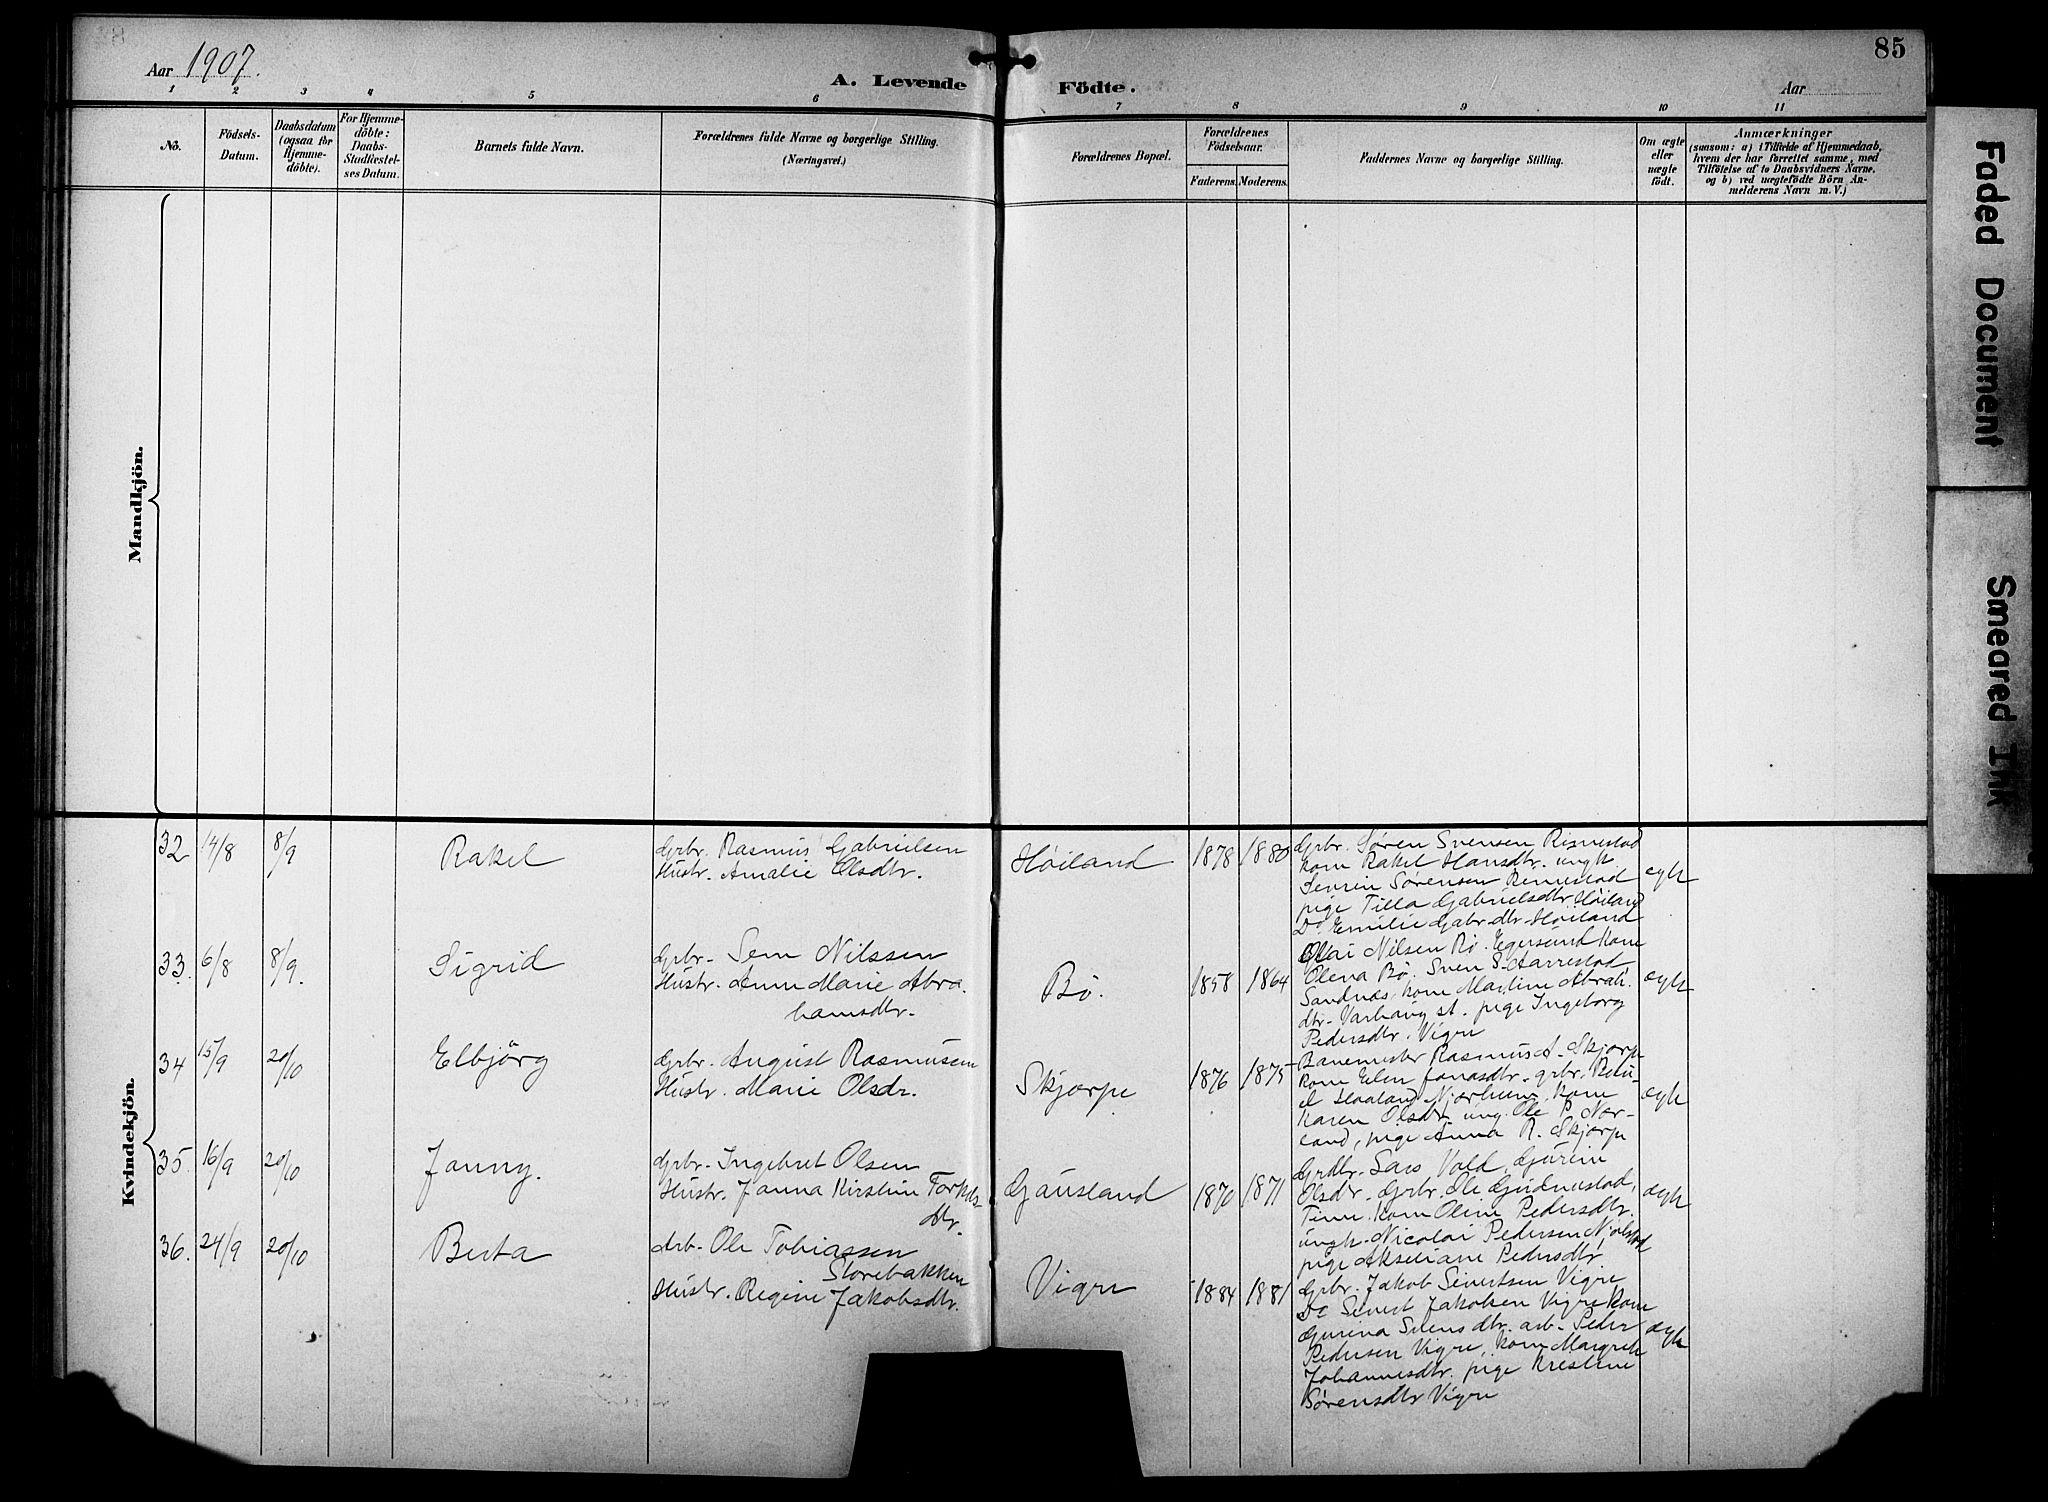 Aar 1907.
A. Levende Födte.
85
Aar
1 2 3 4 5 6 7 8 9 10 11
No.
Födsels-
Datum.
Daabsdatum
(ogsaa for
Hjemme-
döbte).
For Hjemme-
döbte:
Daabs-
Stadfæstel-
ses Datum.
Barnets fulde Navn.
Forældrenes fulde Navne og borgerlige Stilling.
(Næringsvei.)
Forældrenes Bopæl.
Forældrenes
Födselsaar.
Faderens. Moderens.
Faddernes Navne og borgerlige Stilling.
Om ægte
eller
uægte
födt.
Anmærkninger
(saasom: a) i Tilfælde af Hjemmedaab,
hvem der har forrettet samme, med
Tilföielse af to Daabsvidners Navne.
og b) ved uægtefödte Börn An-
melderens Navn m. V.)
Mandkjön.
Kvindekjön.
32 14/8 8/9
Rakel
Grbr. Rasmus Gabrielsen
Hustr. Amalie Olsdtr.
Høiland
1878 1880
Grbr. Søren Svensen Rismestad
kone Rakel Hansdtr. ungk
Sørensen Rimestad
pige Tilla Gabrielsdtr Høiland
Do Emilie Gabr.dtr Høiland
egte
33. 6/8 8/9.
Sigrid
Grbr- Sem Nilssen
Hustr. Anne Marie Abra.
hamsdtr.
Bö.
1858 1864
Olai Nilsen Bø. Egersund kone
Olena Bø. Sven S. Aarrestad
Sandnæs, kone Martine Abrah.
dtr- Varhaug st. pige Ingeborg
Pedersdtr, Vigre
egte
34 15/9 20/10
Elbjörg
Grbr. August Rasmussen
Hustr. Marie Olsdr.
Skjærpe
1876 1875
Banemester Rasmus A. Skjærpe
kone Elen Jonasdtr. grbr.
Haaland Njærheim, kone
Karen Olsdtr ung. Ole P. Nær-
land, pige Anna R. Skjærpe
egte
35. 16/9 20/10
Janny.
Grbr- Ingebret Olsen
Hustr. Janna Kirstine Torkels-
dtr.
Gausland
1870 1871
Lars Vold, Gurine
Olsdtr. Grbr. Ole
Time. kone Oline Pedersdtr.
ungk. Nicolai Pedersen Njølstad
pige Akseliane Pedersdtr
egte
36. 24/9 20/10
Berta
Arb- Ole Tobiassen
Storebakken
Hustr. Regine Jakobsdtr.
Vigre
1884 1881
Grbr. Jakob Sivertsen Vigre
Do Sivert Jakobsen Vigre kone
Gurina Svensdtr. arb- Peder
Pedersen Vigre, kone Margrete
Johannesdtr. pige Kristine
Sørensdtr Vigre
egte
Faded Document
Smeared Ink